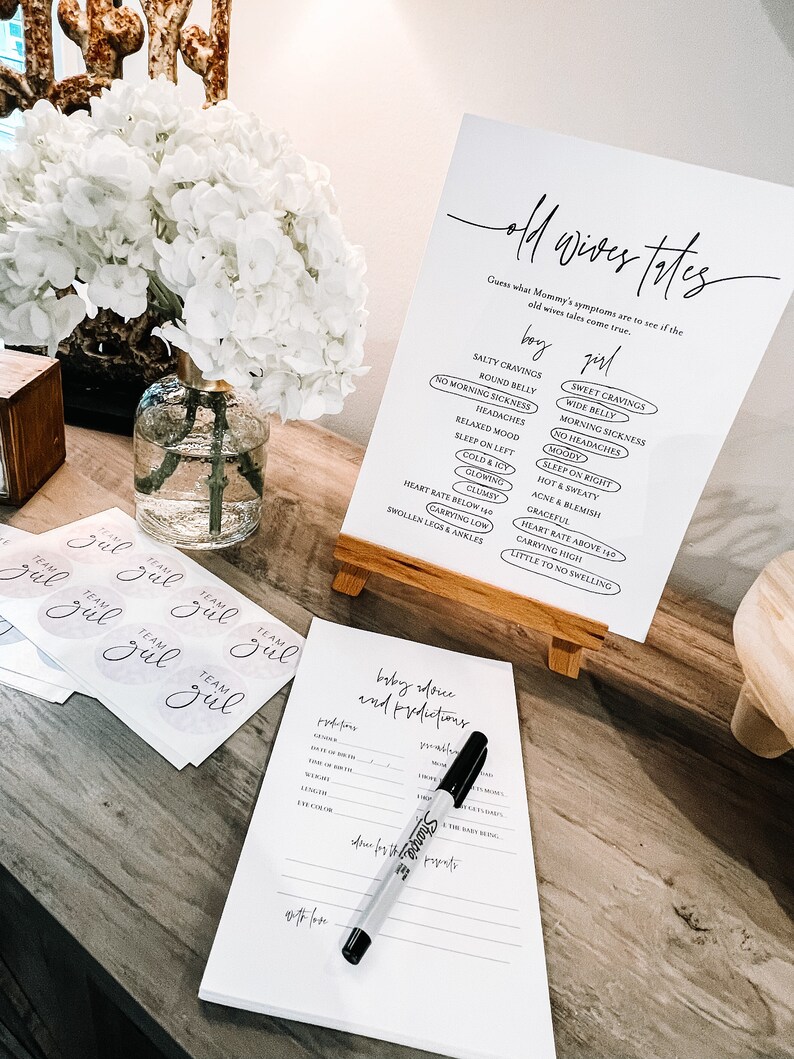 old wives tales
Guess what Mommy's symptoms are to see if the
old wives tales come true.
boy
SALTY CRAVINGS
ROUND BELLY
NO MORNING SICKNESS
HEADACHES
RELAXED MOOD
SLEEP ON LEFT
COLD & ICY
GLOWING
CLUMSY
HEART RATE BELOW 140
CARRYING LOW
SWOLLEN LEGS & ANKLES
girl
SWEET CRAVINGS
WIDE BELLY
MORNING SICKNESS
NO HEADACHES
MOODY
SLEEP ON RIGHT
HOT & SWEATY
ACNE & BLEMISH
GRACEFUL
HEART RATE ABOVE 140
CARRYING HIGH
LITTLE TO NO SWELLING
TEAM
girl
TEAM
girl
TEAM
girl
TEAM
girl
TEAM
girl
TEAM
girl
TEAM
girl
TEAM
girl
baby advice
and predictions
predictions
GENDER
DATE OF BIRTH / /
TIME OF BIRTH
WEIGHT
LENGTH
EYE COLOR
MOM DAD
I HOPE GETS MOM'S...
GETS DAD'S...
THE BABY BEING...
advice for the parents
with love
Sharpie